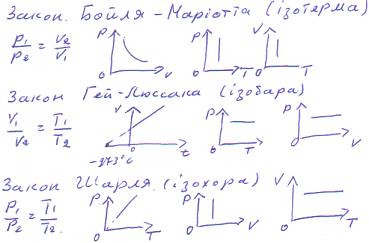 Закон. Бойля – Маріотта (ізотерма)
P₁/P₂ = V₂/V₁ P 0 V P 0 T V 0 T
Закон Гей-Люссака (ізобара)
V₁/V₂ = T₁/T₂ V 0 -273°C t P 0 T P 0 V
Закон Шарля (ізохора)
P₁/P₂ = T₁/T₂. P 0 T P 0 V V 0 T